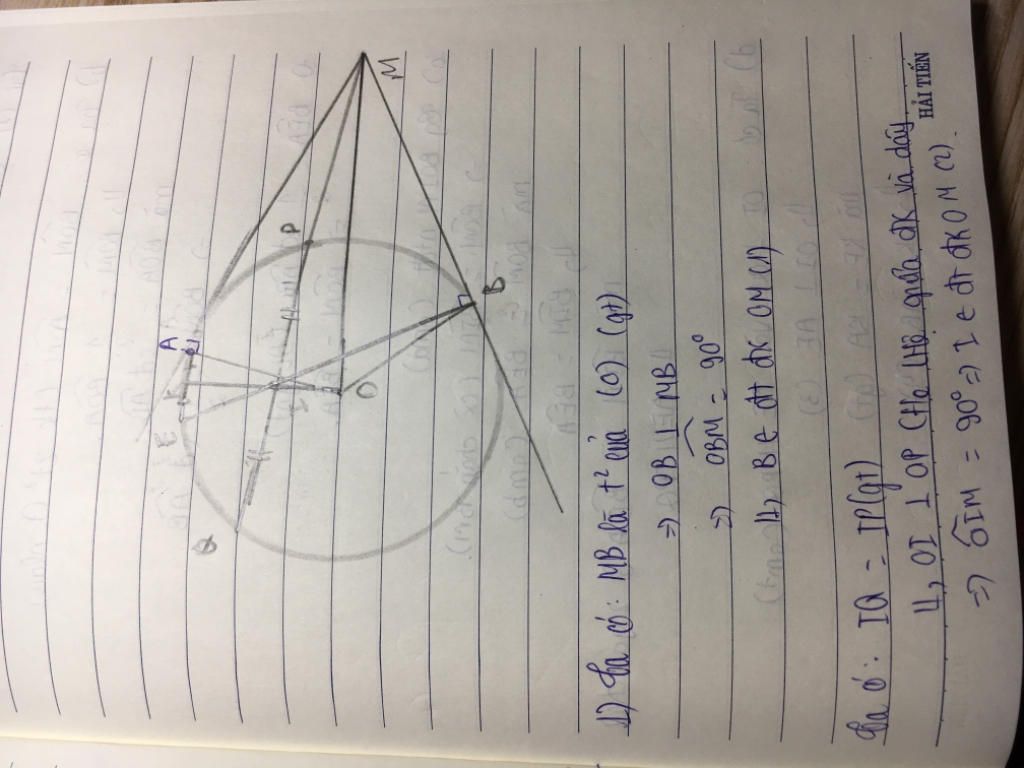 M
P
A
K
E
I
O
B
Q
1) Ta có: MB là t² của (O) (gt)
=> OB ⊥ MB
=> OBM = 90°
=> B ∈ đt đk OM (1)
Ta có: IQ = IP (gt)
=> OI ⊥ QP (Hệ thệ giữa đk và dây
=> OIM = 90° => I ∈ đt đk OM (2).
HẢI TIẾN